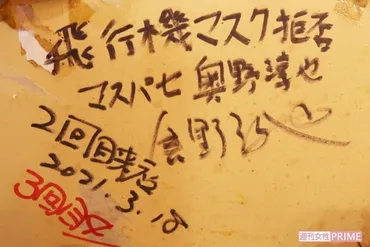 飛行機マスク拒否
マスパセ 奥野淳也
2回目来店
2021.3.18
3回目
週刊女性PRIME